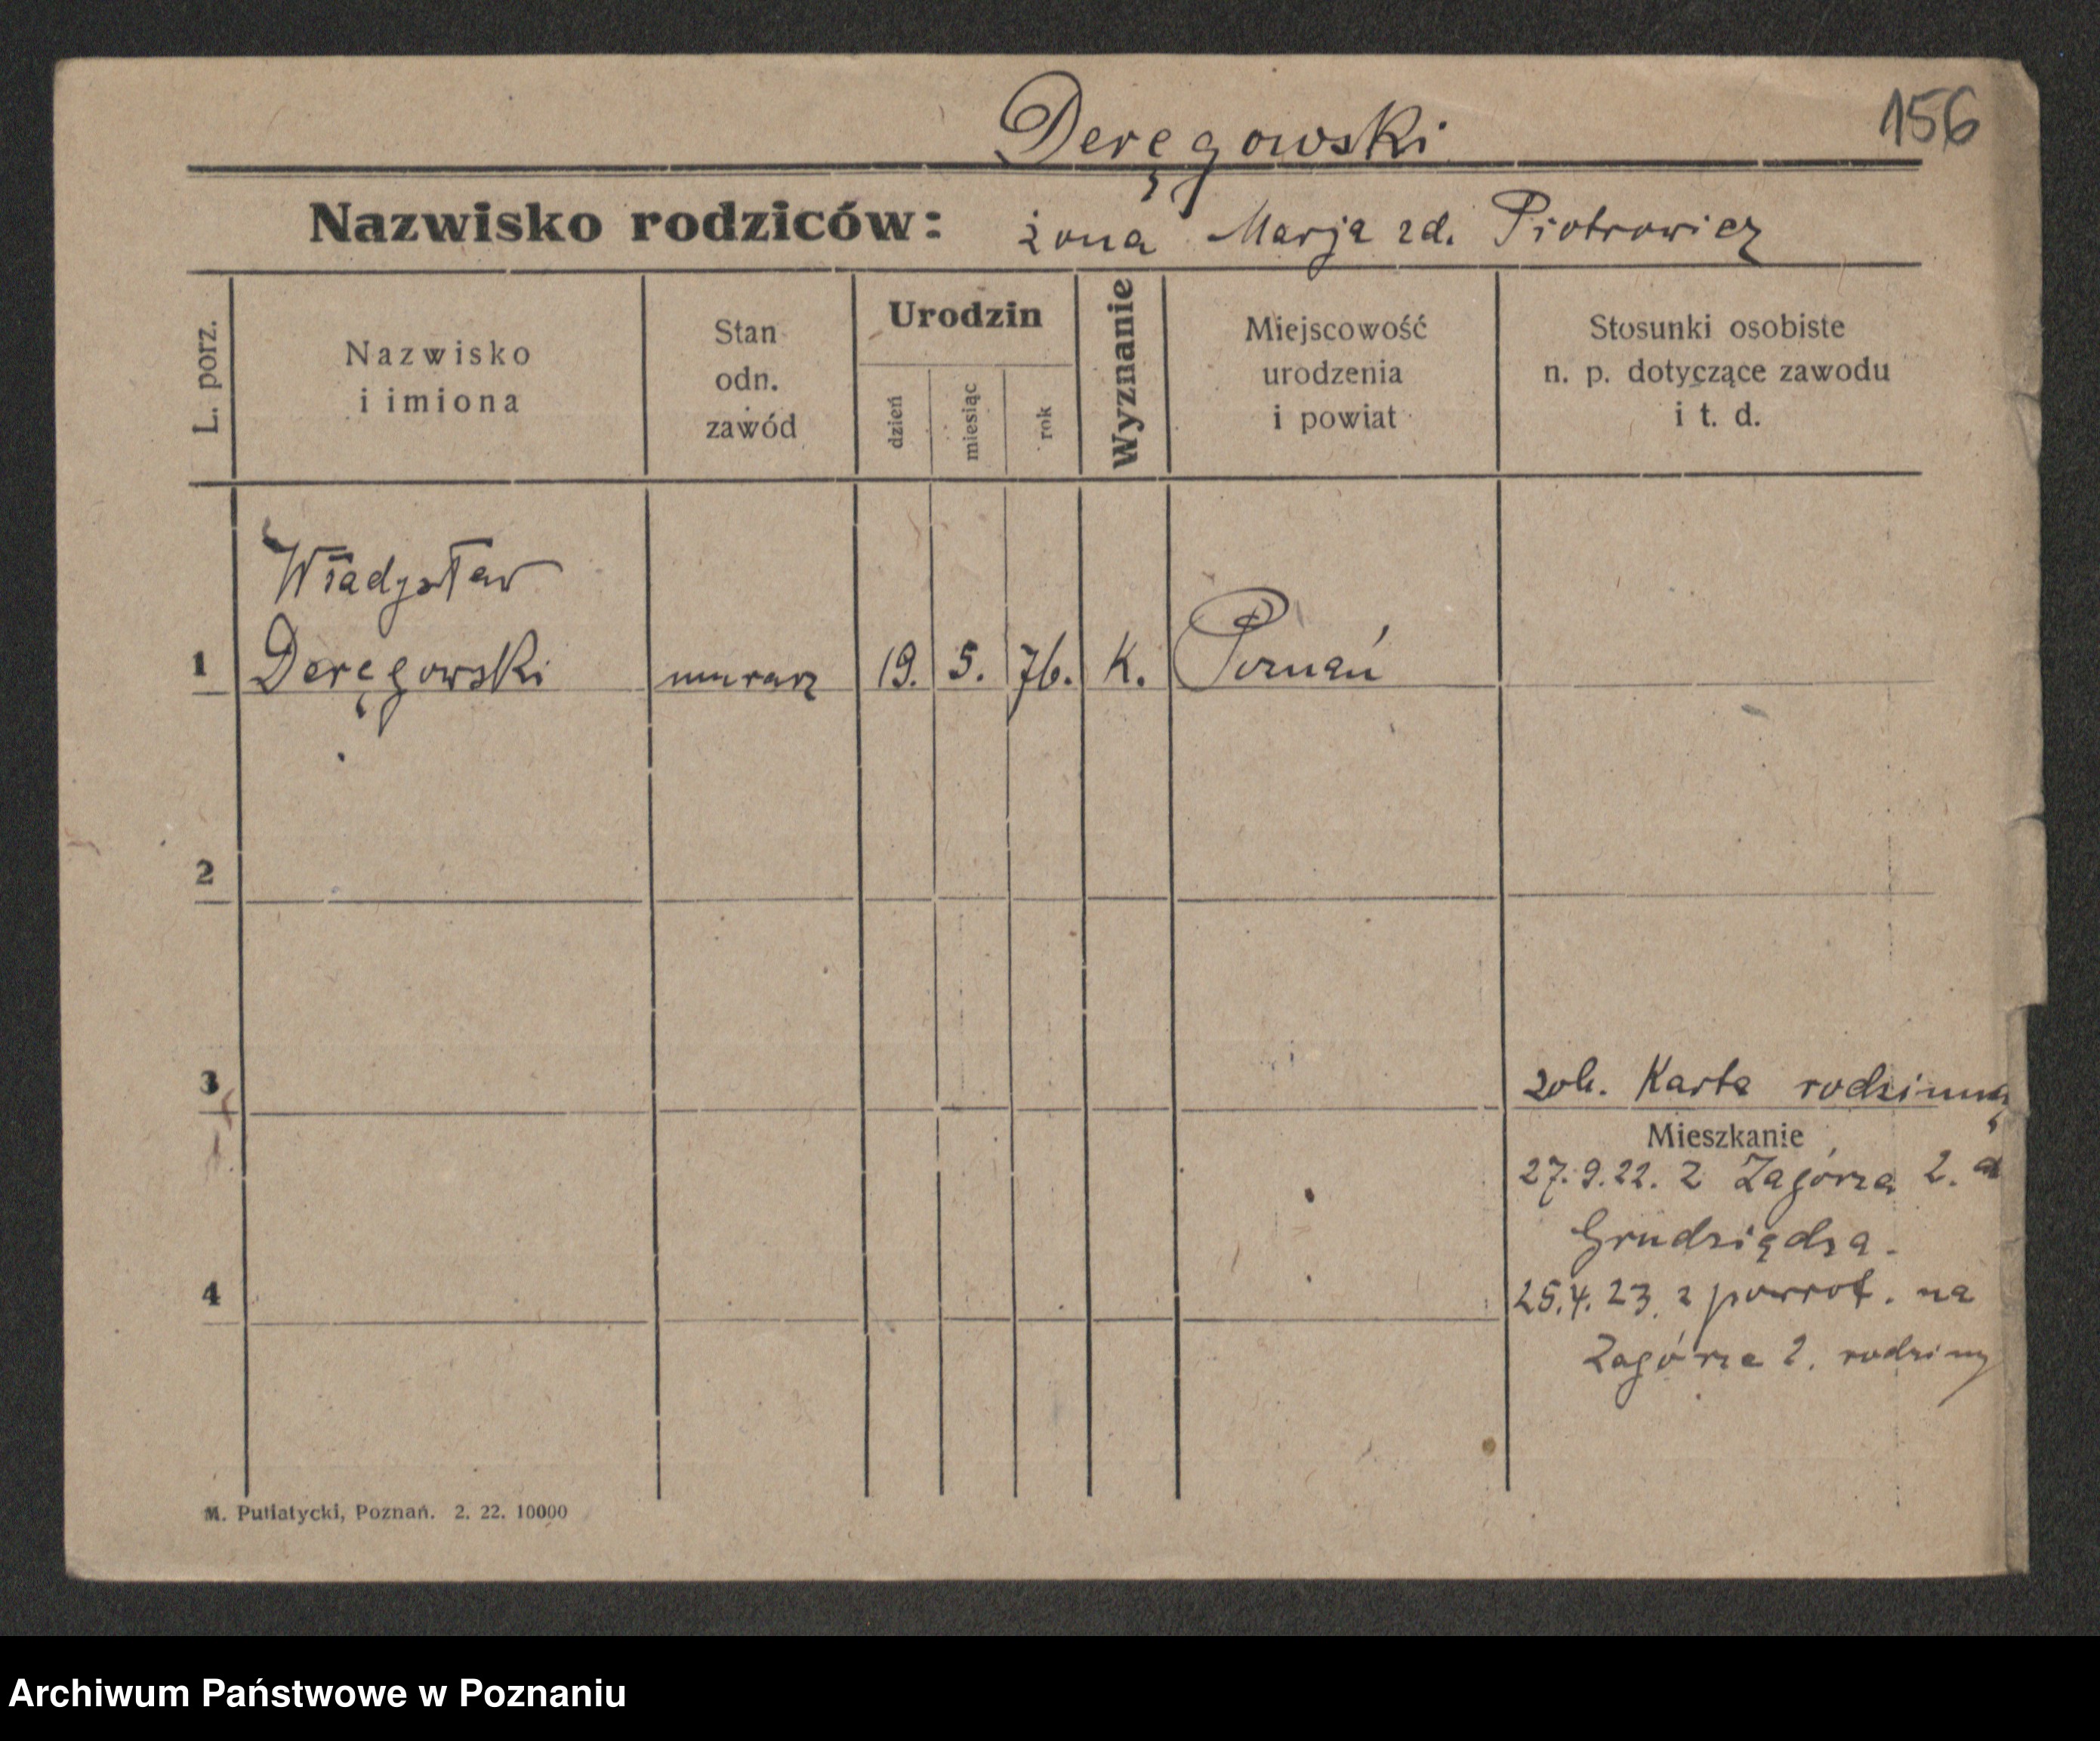 Deręgowski
156
Nazwisko rodziców: żona Marja zd. Piotrowicz
L. porz.
Nazwisko
i imiona
Stan
odn.
zawód
Urodzin
dzień
miesiąc
rok
Wyznanie
Miejscowość
urodzenia
i powiat
Stosunki osobiste
n. p. dotyczące zawodu
i t. d.
Władysław
1 Deręgowski murarz 19. 5. 76. K. Poznań
2
3
zob. Karta rodzinna
Mieszkanie
27.9.22. z Zagórza 2. d
Grudziądza.
4
25.4.23 z powrot. na
Zagórze 2. rodziny
M. Putiatycki, Poznań. 2. 22. 10000
Archiwum Państwowe w Poznaniu